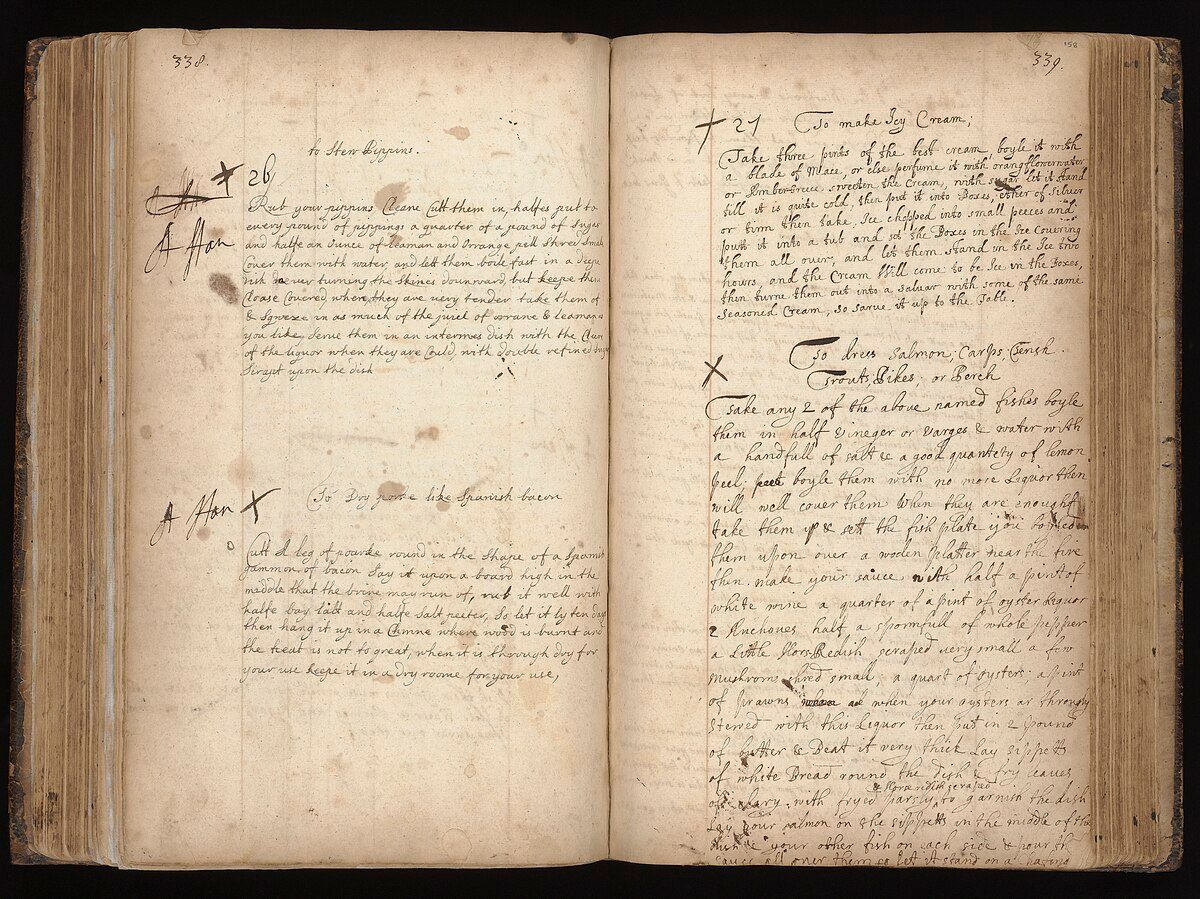 338.
to Stew Pippins.
26
A Han
Rub your pippins Cleane Cutt them in halfes put to
every pound of pippings a quarter of a pound of Sugar
and halfe an Ounce of Leaman and Orrange pell Shred Small
Cover them with water, and lett them boile fast in a deepe
dish never turning the Skines downward, but keepe them
Cloase Covered, when they are very tender take them of
& Sqweze in as much of the juice of orrane & leaman as
you like, Serve them in an intermes dish with the
of the liquor when they are Could, with double refined Sugar
Scrapt upon the dish
A Han
To Dry porke like Spanish bacon
Cutt A leg of pourke round in the Shape of a Spanish
gammon of bacon Lay it upon a board high in the
middle that the brine may run of, rub it well with
halfe bay Salt and halfe Salt peeter, So let it ly ten days
then hang it up in a Chimne where wood is burnt and
the heat is not to great, when it is through dry for
your use keepe it in a dry roome for your use,
158
339.
27 To make Icy Cream;
Take three pints of the best cream, boyle it with
a blade of Mace, or else perfume it with orangflowerwater
or AmberGreece, sweeten the Cream, with sugar let it stand
till it is quite cold, then put it into Boxes, ether of Silver
or tinn then take, Ice chopped into small peeces and
putt it into a tub and set the Boxes in the Ice covering
them all over, and let them stand in the Ice two
hours, and the Cream Will come to be Ice in the Boxes,
then turne them out into a salvar with some of the same
Seasoned Cream, so sarve it up to the Table.
To dress Salmon, Carps, Tensh
Trouts, Pikes, or Perch
Take any 2 of the above named fishes boyle
them in half Vineger or Varges & water with
a handfull of salt & a good quantety of lemon
peel; boyle them with no more Liquor then
will well cover them When they are enough
take them up & sett the fish plate you boyled
them upon over a woden Platter near the fire
then make your sauce with half a pint of
white wine a quarter of a pint of oyster Liquor
2 Anchoves half a spoonfull of whole pepper
a Little HorsRedish scraped very small a few
Mushroms shred small, a quart of oysters, a pint
of prawns when your oysters ar through
stewed with this Liquor then put in 2 pound
of butter & Beat it very thick Lay sippets
of white Bread round the dish & fry leaves
& Horsredish scraped
of with fryed Parsly to garnish the dish
Lay your salmon on the sippetts in the middle of the
dish & your other fish on each side & pour th
sauce all over them so let it stand on a